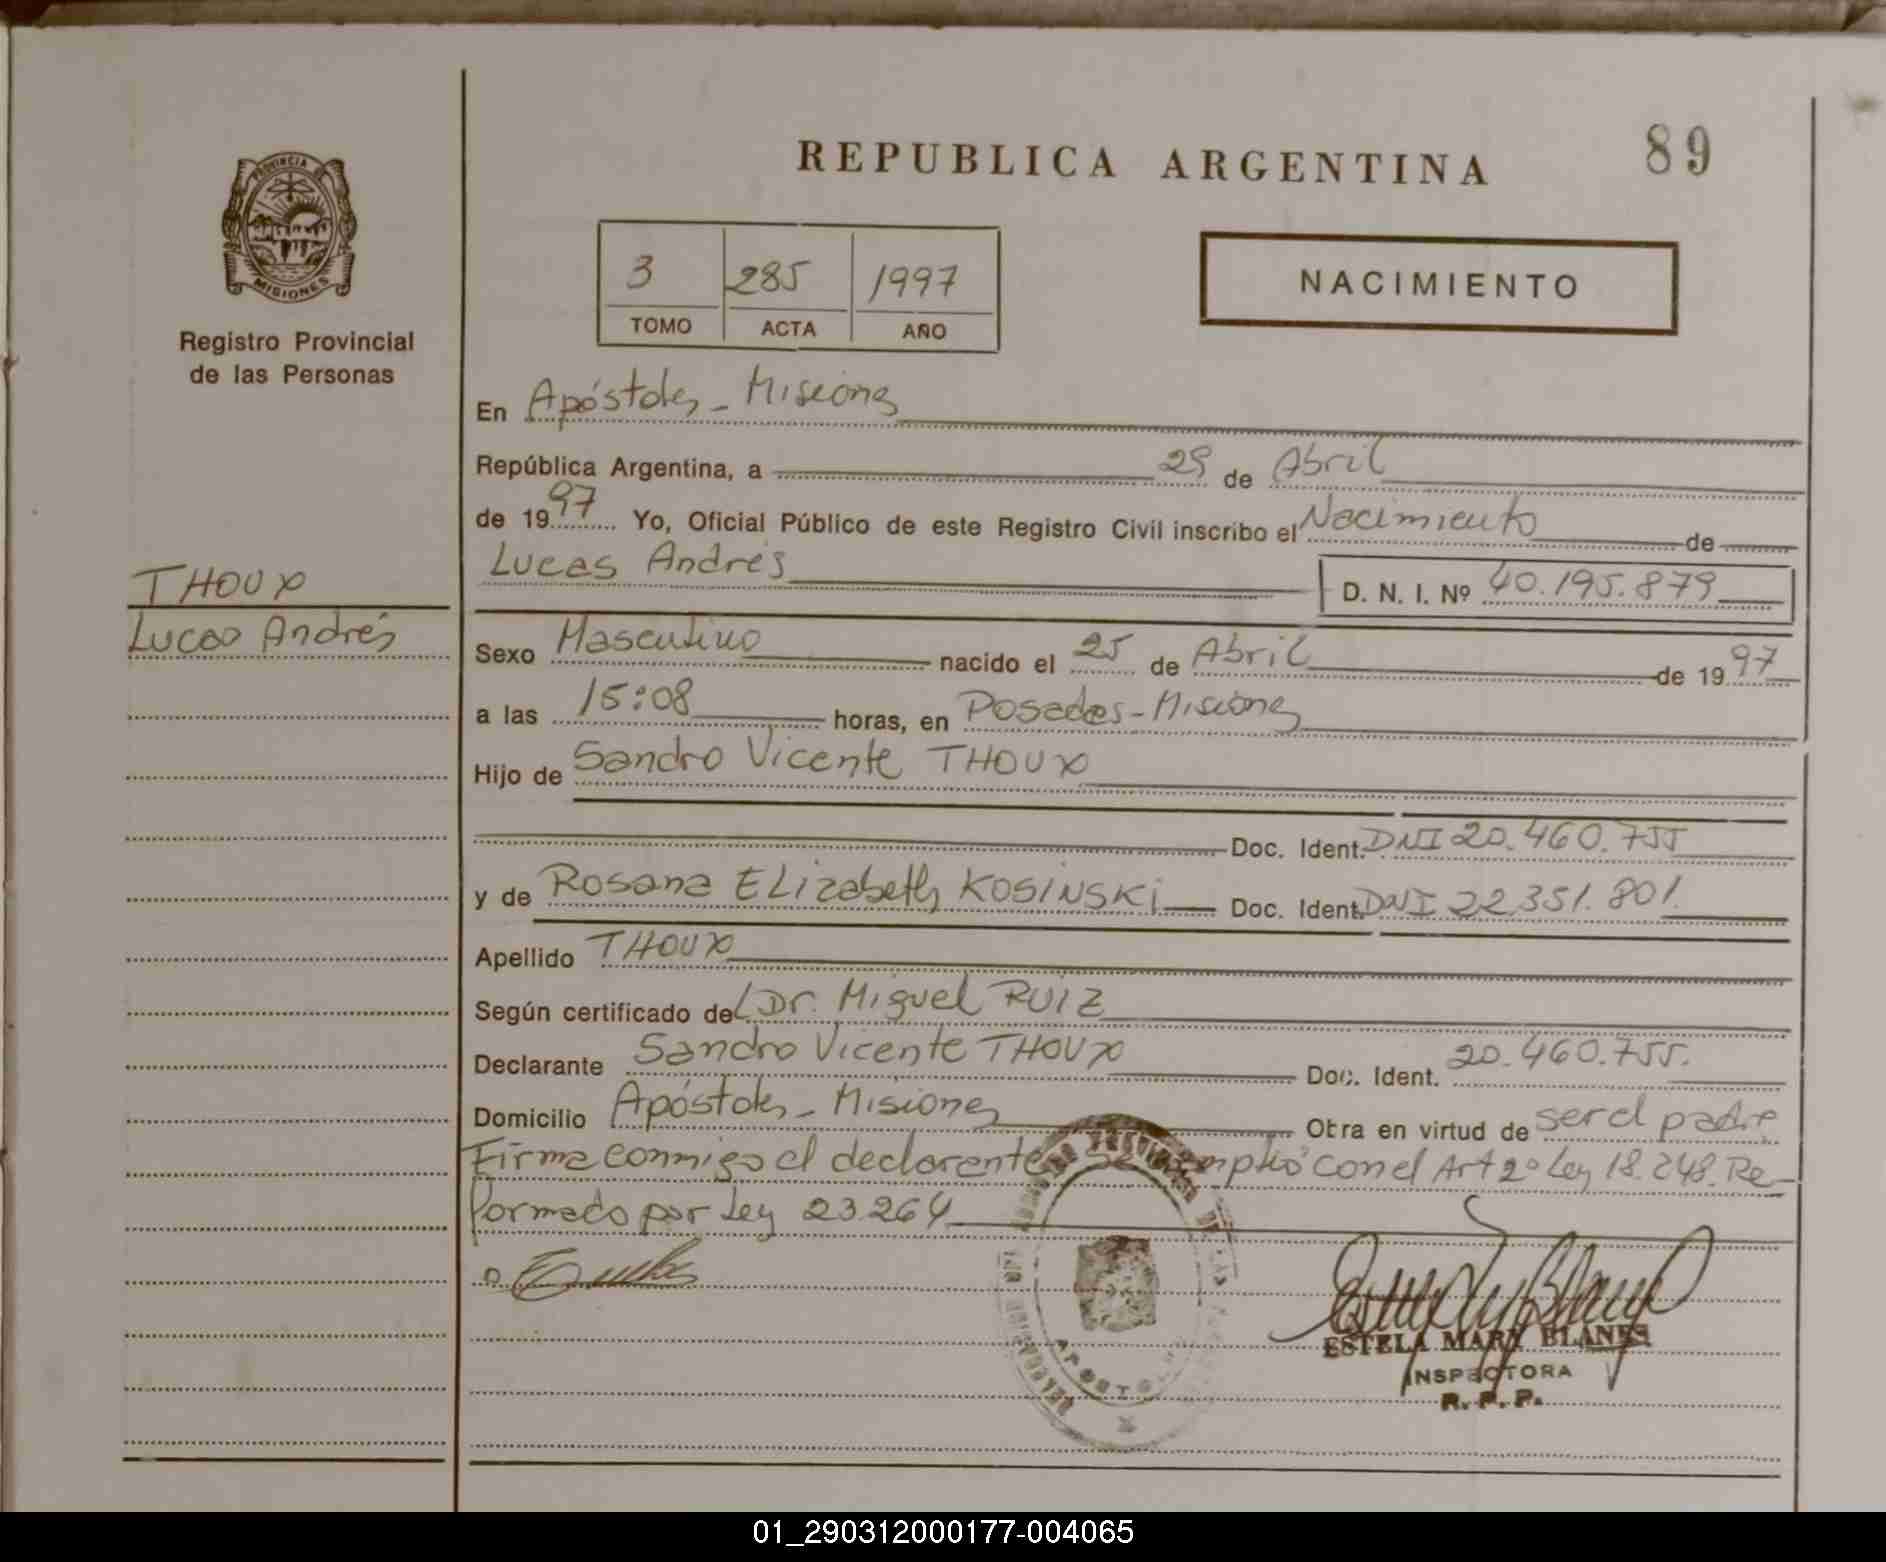 REPUBLICA ARGENTINA
89
PROVINCIA DE
MISIONES
Registro Provincial
de las Personas
3 285 1997
TOMO ACTA AÑO
NACIMIENTO
THOUX
Lucas Andrés
En Apóstoles - Misiones
República Argentina, a 29 de Abril
de 1997 Yo, Oficial Público de este Registro Civil inscribo el Nacimiento de
Lucas Andrés D. N. I. Nº 40.195.879
Sexo Masculino nacido el 25 de Abril de 1997
a las 15:08 horas, en Posadas - Misiones
Hijo de Sandro Vicente THOUX
Doc. Ident. DNI 20.460.755
y de Rosana ELizabeth KOSINSKi Doc. Ident. DNI 22.351.801.
Apellido THOUX
Según certificado del Dr. Miguel RUIZ
Declarante Sandro Vicente THOUX Doc. Ident. 20.460.755.
Domicilio Apóstoles - Misiones Obra en virtud de ser el padre
Firma conmigo el declarante se cumplió con el Art 2º Ley 18.248. Re-
formado por Ley 23264
ESTELA MARY BLANES
INSPECTORA
R. P. P.
01_290312000177-004065